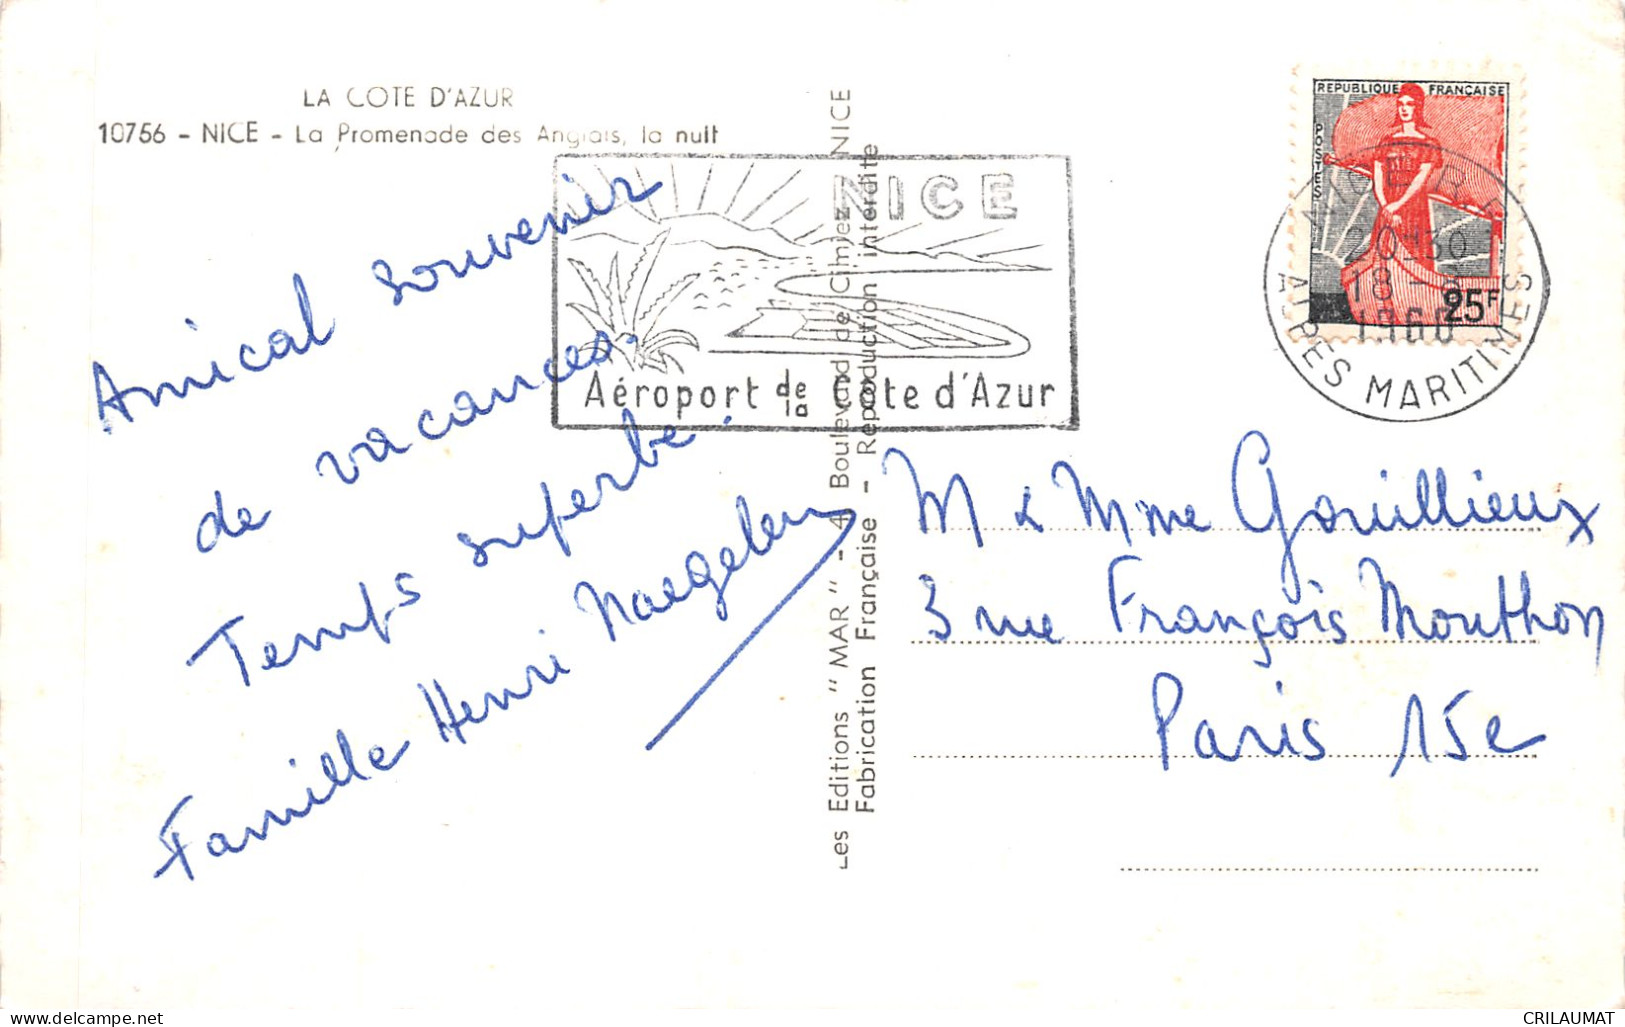 LA COTE D'AZUR
10756 - NICE - La Promenade des Anglais, la nuit
Amical souvenir
de vacances.
Temps superbe.
Famille Henri Naegelen
NICE
Aéroport de la Côte d'Azur
Les Editions " MAR " - 4, Boulevard de Cimiez - NICE
Fabrication Française - Reproduction interdite
REPUBLIQUE FRANÇAISE
POSTES
25F
NICE R.P.
20H30
18 - 
1960
ALPES MARITIMES
M & Mme Gouillieux
3 rue François Mouthon
Paris 15e
CRILAUMAT